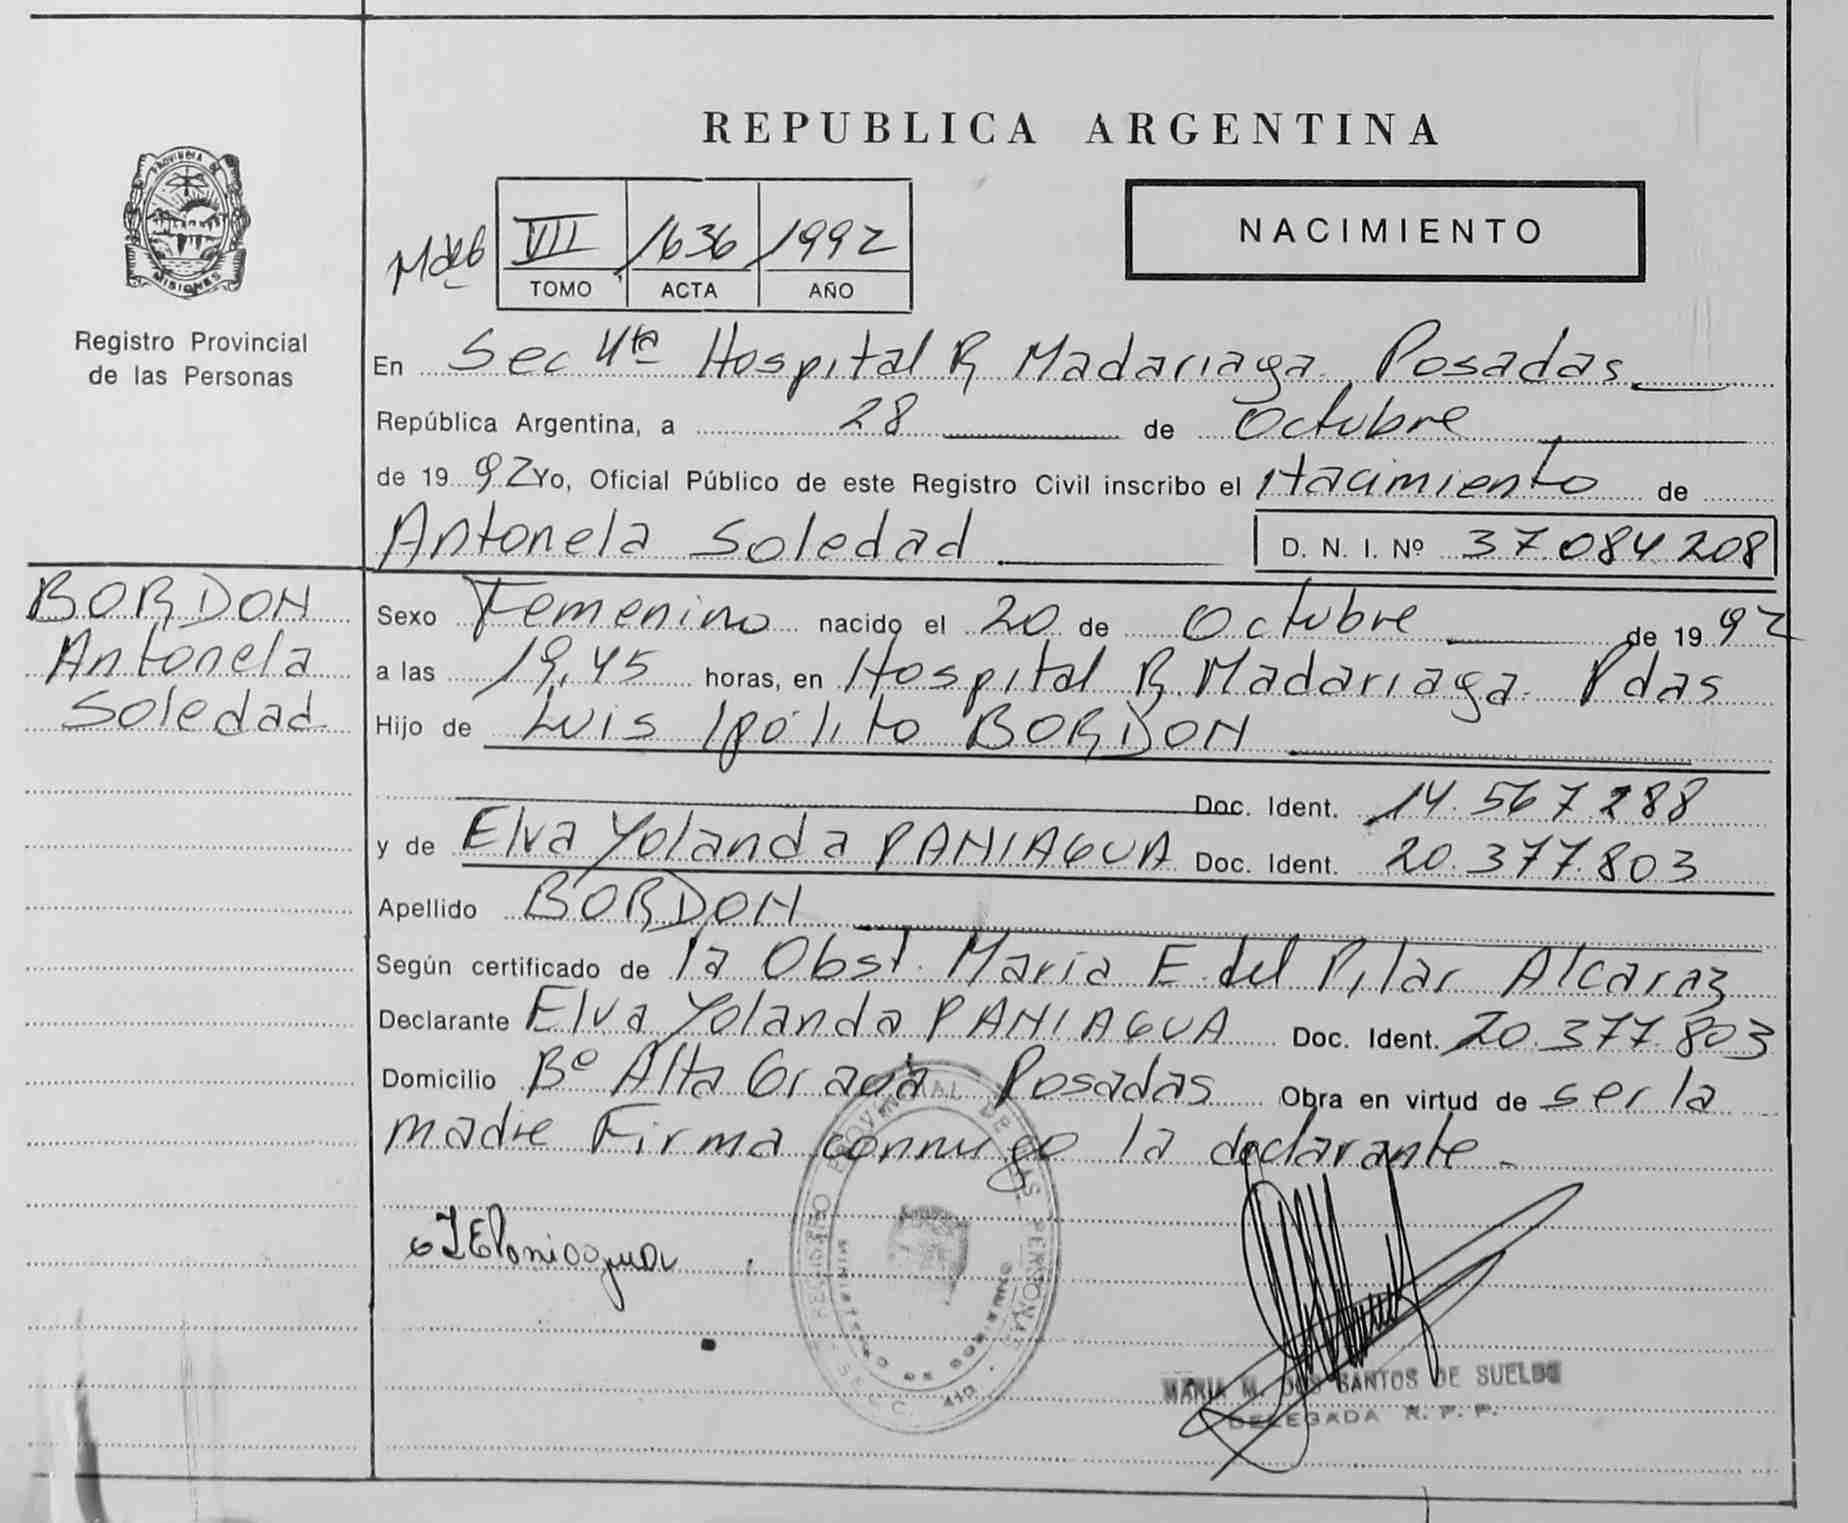 REPUBLICA ARGENTINA
PROVINCIA DE
MISIONES
Registro Provincial
de las Personas
VII 1636 1992
TOMO ACTA AÑO
NACIMIENTO
En Sec 4ta Hospital R Madariaga Posadas
República Argentina, a 28 de Octubre
de 1992 Yo, Oficial Público de este Registro Civil inscribo el Nacimiento de
Antonela Soledad D. N. I. Nº 37084208
BORDON
Antonela
Soledad
Sexo Femenino nacido el 20 de Octubre de 1992
a las 19,45 horas, en Hospital R. Madariaga Pdas
Hijo de Luis Ipólito BORDON
Doc. Ident. 14.567.288
y de Elva Yolanda PANIAGUA Doc. Ident. 20.377.803
Apellido BORDON
Según certificado de la Obst. María E. del Pilar Alcaraz
Declarante Elva Yolanda PANIAGUA Doc. Ident. 20.377.803
Domicilio Bº Alta Gracia Posadas Obra en virtud de ser la
madre Firma conmigo la declarante.
REGISTRO PROVINCIAL DE LAS PERSONAS
MINISTERIO DE GOBIERNO
SECC. 4ta
MARIA M. DOS SANTOS DE SUELDO
DELEGADA R. P. P.